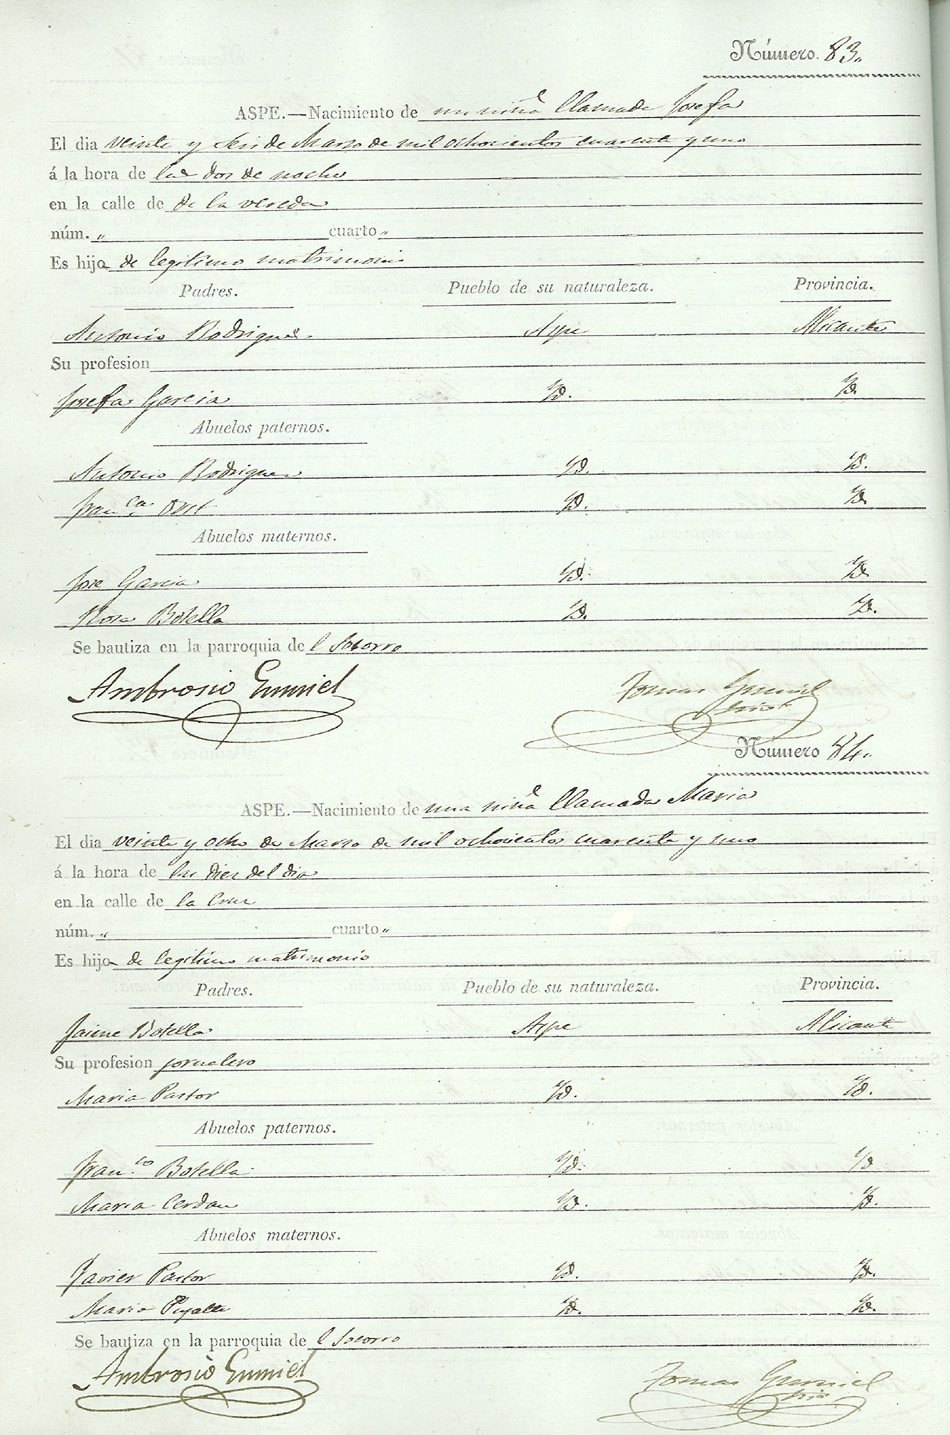 Número. 83.
ASPE.—Nacimiento de un niña llamada Josefa
El dia veinte y seis de Marzo de mil ochocientos cuarenta y uno
á la hora de las dos de noche
en la calle de de la vereda
núm. „ cuarto „
Es hija de legitimo matrimonio
Padres. Pueblo de su naturaleza. Provincia.
Antonio Rodriguez Aspe Alicante
Su profesion
Josefa Garcia Yd. Yd.
Abuelos paternos.
Antonio Rodriguez Yd. Yd.
Fran.ca Yd. Yd.
Abuelos maternos.
Jose Garcia Yd. Yd.
Rosa Botella Yd. Yd.
Se bautiza en la parroquia del Socorro
Ambrosio Gumiel Tomas Gumiel
Número 84.
ASPE.—Nacimiento de una niña llamada Maria
El dia veinte y ocho de Marzo de mil ochocientos cuarenta y uno
á la hora de las diez del dia
en la calle de la Cruz
núm. „ cuarto „
Es hija de legitimo matrimonio
Padres. Pueblo de su naturaleza. Provincia.
Jaime Botella Aspe Alicante
Su profesion jornalero
Maria Pastor Yd. Yd.
Abuelos paternos.
Fran.co Botella Yd. Yd
Maria Cerdan Yd. Yd.
Abuelos maternos.
Javier Pastor Yd. Yd.
Maria Yd. Yd.
Se bautiza en la parroquia del Socorro
Ambrosio Gumiel Tomas Gumiel